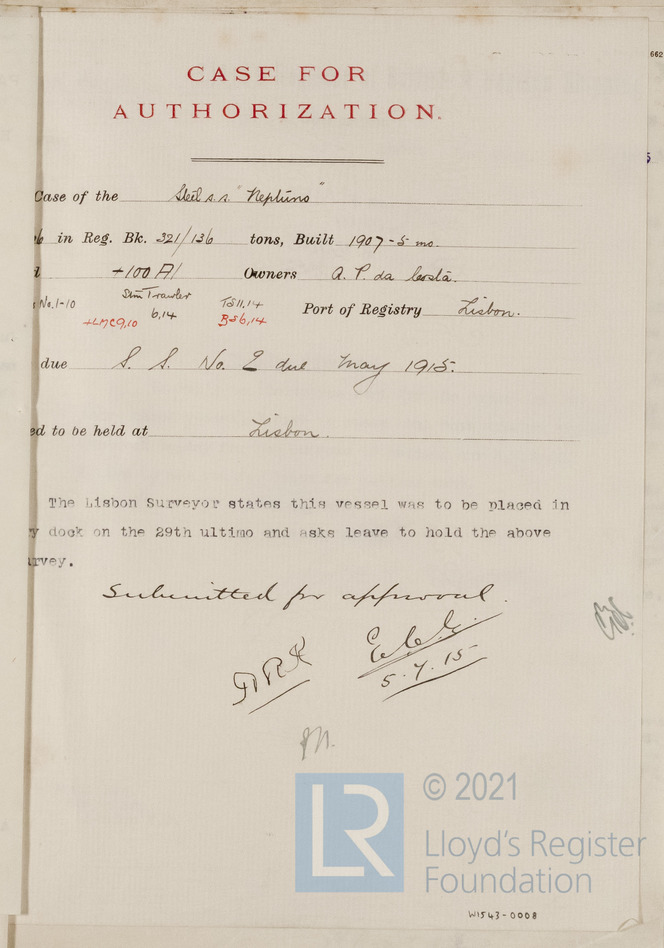 662
CASE FOR
AUTHORIZATION.
Case of the Steel s.s. "Neptuno"
in Reg. Bk. 321/136 tons, Built 1907-5 mo.
+100 A1 Owners A. P. da Costa.
No. 1-10 Stm Trawler 6,14 TS 11,14 Port of Registry Lisbon.
+LMC 9,10 BS 6,14
due S. S. No. 2 due May 1915.
ed to be held at Lisbon.
The Lisbon Surveyor states this vessel was to be placed in
y dock on the 29th ultimo and asks leave to hold the above
urvey.
Submitted for approval.
5.7.15
LR
© 2021
Lloyd's Register
Foundation
W1543-0008